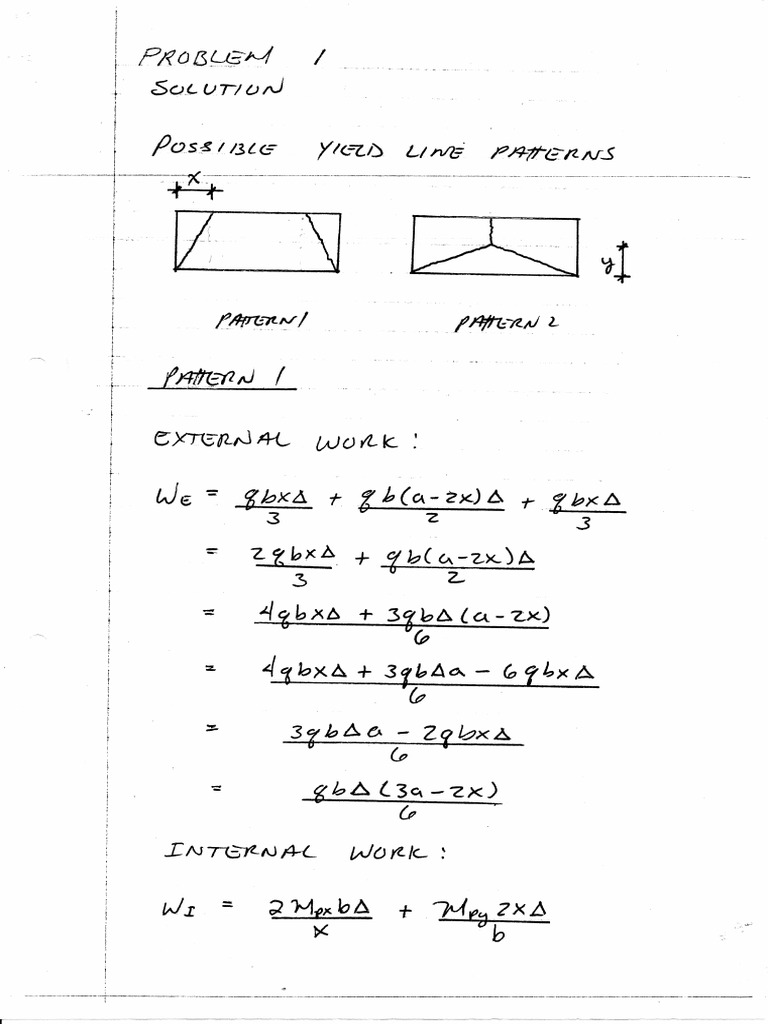 PROBLEM 1
SOLUTION
POSSIBLE YIELD LINE PATTERNS
x
y
PATTERN 1 PATTERN 2
PATTERN 1
EXTERNAL WORK:
W_E = qbxΔ/3 + qb(a-2x)Δ/2 + qbxΔ/3
= 2qbxΔ/3 + qb(a-2x)Δ/2
= 4qbxΔ + 3qbΔ(a-2x)/6
= 4qbxΔ + 3qbΔa - 6qbxΔ/6
= 3qbΔa - 2qbxΔ/6
= qbΔ(3a-2x)/6
INTERNAL WORK:
W_I = 2M_px bΔ/x + M_py 2xΔ/b